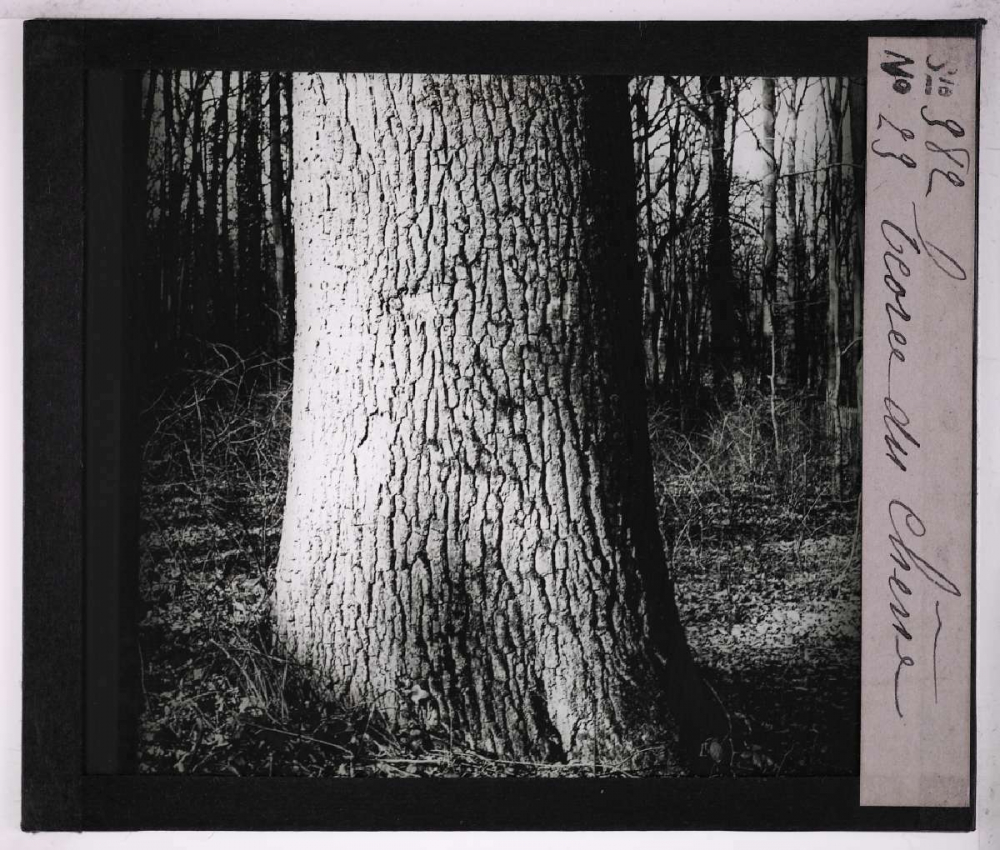 Sie 982
No 29 Écorce du Chêne